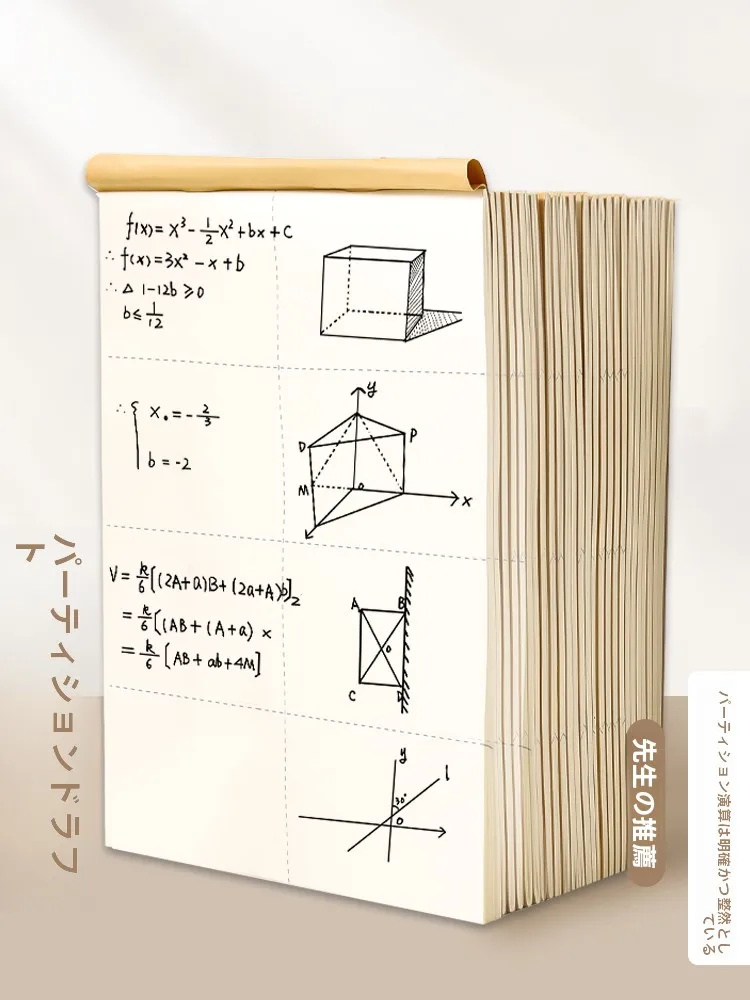 f(x)= x³-1/2x²+bx+c
∴ f(x)=3x²-x+b
∴ Δ 1-12b≥0
b≤1/12
∴ { x₀=-2/3
b=-2
y
D
P
M
o
x
V=k/6[(2A+a)B+(2a+A)b]₂
=k/6[(AB+(A+a) x
=k/6[AB+ab+4M]
A
B
o
C
D
y
l
30°
o
パーティションドラフ
ト
先生の推薦
パーティション演算は明確かつ整然とし
ている